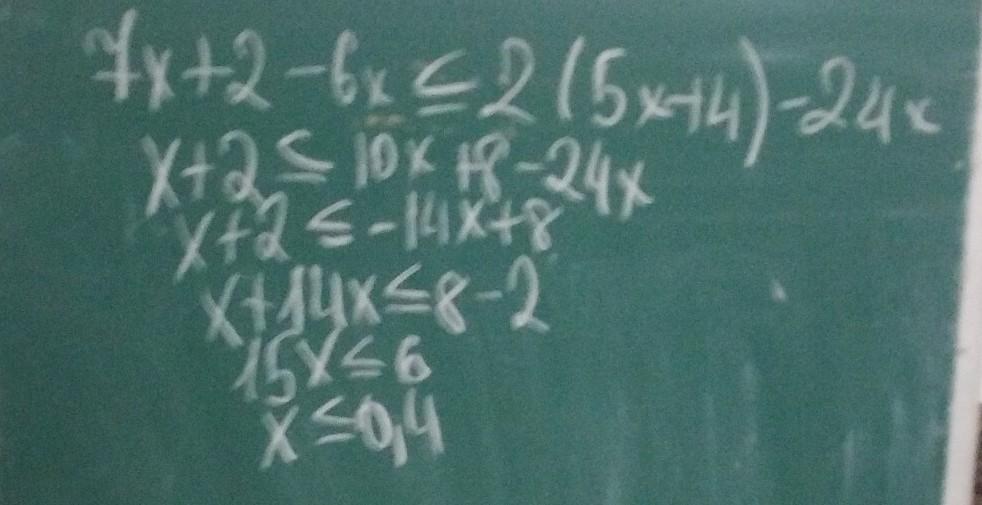 7x+2-6x≤2(5x+4)-24x
x+2≤10x+8-24x
x+2≤-14x+8
x+14x≤8-2
15x≤6
x≤0,4